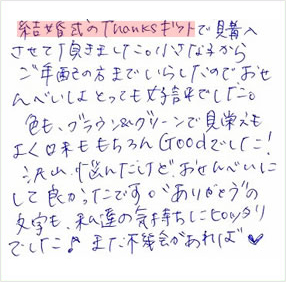 結婚式のThanksギフトで購入
させて頂きました。小さな子から
ご年配の方までいらしたのでおせ
んべいはとっても好評でした。
色も、ブラウン&グリーンで見栄えも
よく味ももちろんGoodでした!
沢山悩んだけど、おせんべいに
して良かったです。"ありがとう"の
文字も、私達の気持ちにピッタリ
でした♪また機会があれば♥